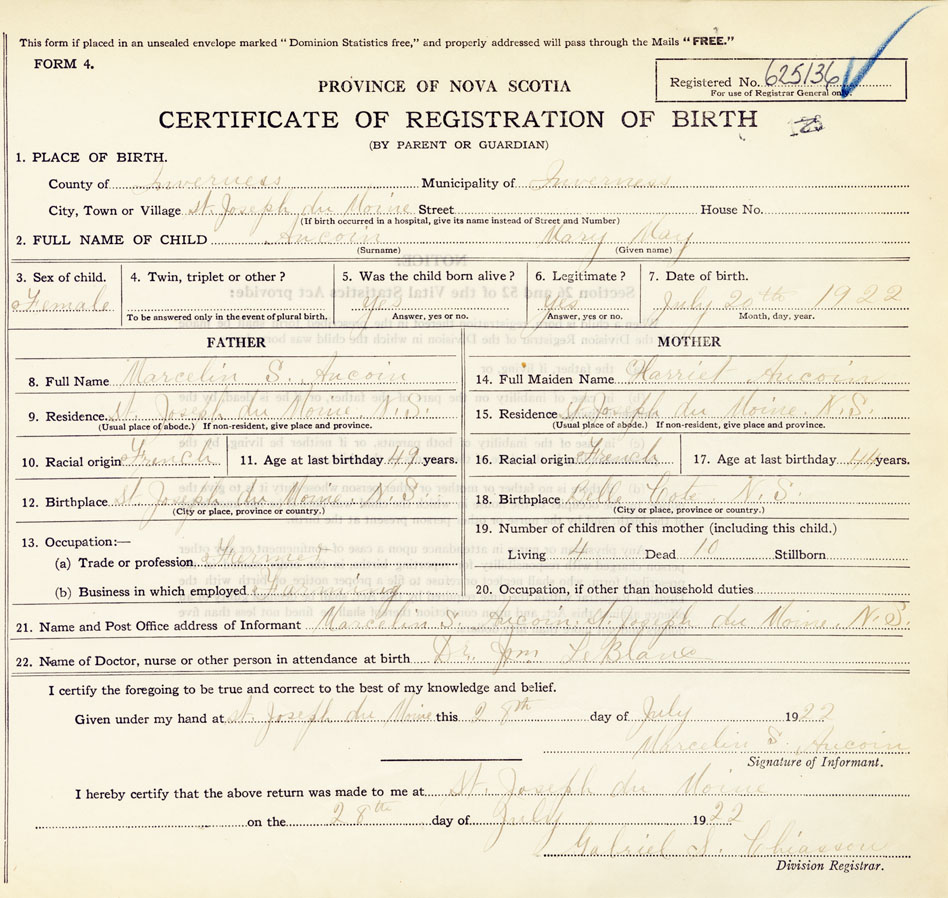 This form if placed in an unsealed envelope marked "Dominion Statistics free," and properly addressed will pass through the Mails "FREE."
FORM 4.
Registered No. 625136
For use of Registrar General only.
PROVINCE OF NOVA SCOTIA
CERTIFICATE OF REGISTRATION OF BIRTH
(BY PARENT OR GUARDIAN)
1. PLACE OF BIRTH.
County of Inverness Municipality of Inverness
City, Town or Village St. Joseph du Moine Street House No.
(If birth occurred in a hospital, give its name instead of Street and Number)
2. FULL NAME OF CHILD Aucoin Mary May
(Surname) (Given name)
3. Sex of child. 4. Twin, triplet or other? 5. Was the child born alive? 6. Legitimate? 7. Date of birth.
Female Yes Yes July 20th 1922
To be answered only in the event of plural birth. Answer, yes or no. Answer, yes or no. Month, day, year.
FATHER
8. Full Name Marcelin S. Aucoin
9. Residence St. Joseph du Moine, N.S.
(Usual place of abode.) If non-resident, give place and province.
10. Racial origin French 11. Age at last birthday 49 years.
12. Birthplace St. Joseph du Moine, N.S.
(City or place, province or country.)
13. Occupation:—
(a) Trade or profession Farmer
(b) Business in which employed Farming
MOTHER
14. Full Maiden Name Harriet Aucoin
15. Residence St. Joseph du Moine, N.S.
(Usual place of abode.) If non-resident, give place and province.
16. Racial origin French 17. Age at last birthday 44 years.
18. Birthplace Belle Cote N.S.
(City or place, province or country.)
19. Number of children of this mother (including this child.)
Living 4 Dead 10 Stillborn
20. Occupation, if other than household duties
21. Name and Post Office address of Informant Marcelin S. Aucoin, St. Joseph du Moine, N.S.
22. Name of Doctor, nurse or other person in attendance at birth Dr. LeBlanc
I certify the foregoing to be true and correct to the best of my knowledge and belief.
Given under my hand at St. Joseph du Moine this 28th day of July 1922
Marcelin S. Aucoin
Signature of Informant.
I hereby certify that the above return was made to me at St. Joseph du Moine
on the 28th day of July 1922
Gabriel J. Chiasson
Division Registrar.